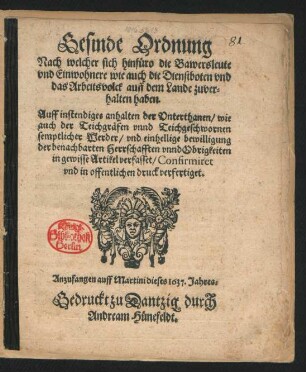 81
Gesinde Ordnung
Nach welcher sich hinfüro die Bawersleute
vnd Einwohnere wie auch die Dienstboten vnd
das Arbeitsvolck auff dem Lande zuver-
halten haben.
Auff instendiges anhalten der Vnterthanen / wie
auch der Teichgräfen vnnd Teichgeschwornen
semptlicher Werder / vnd einhellige bewilligung
der benachbarten Herrschafften vnnd Obrigkeiten
in gewisse Artikel verfasset / Confirmiret
vnd in offentlichen druck verfertiget.
Bibliothek
Berlin
Anzufangen auff Martini dieses 1637. Jahres.
Gedruckt zu Dantzig durch
Andream Hünefeldt.